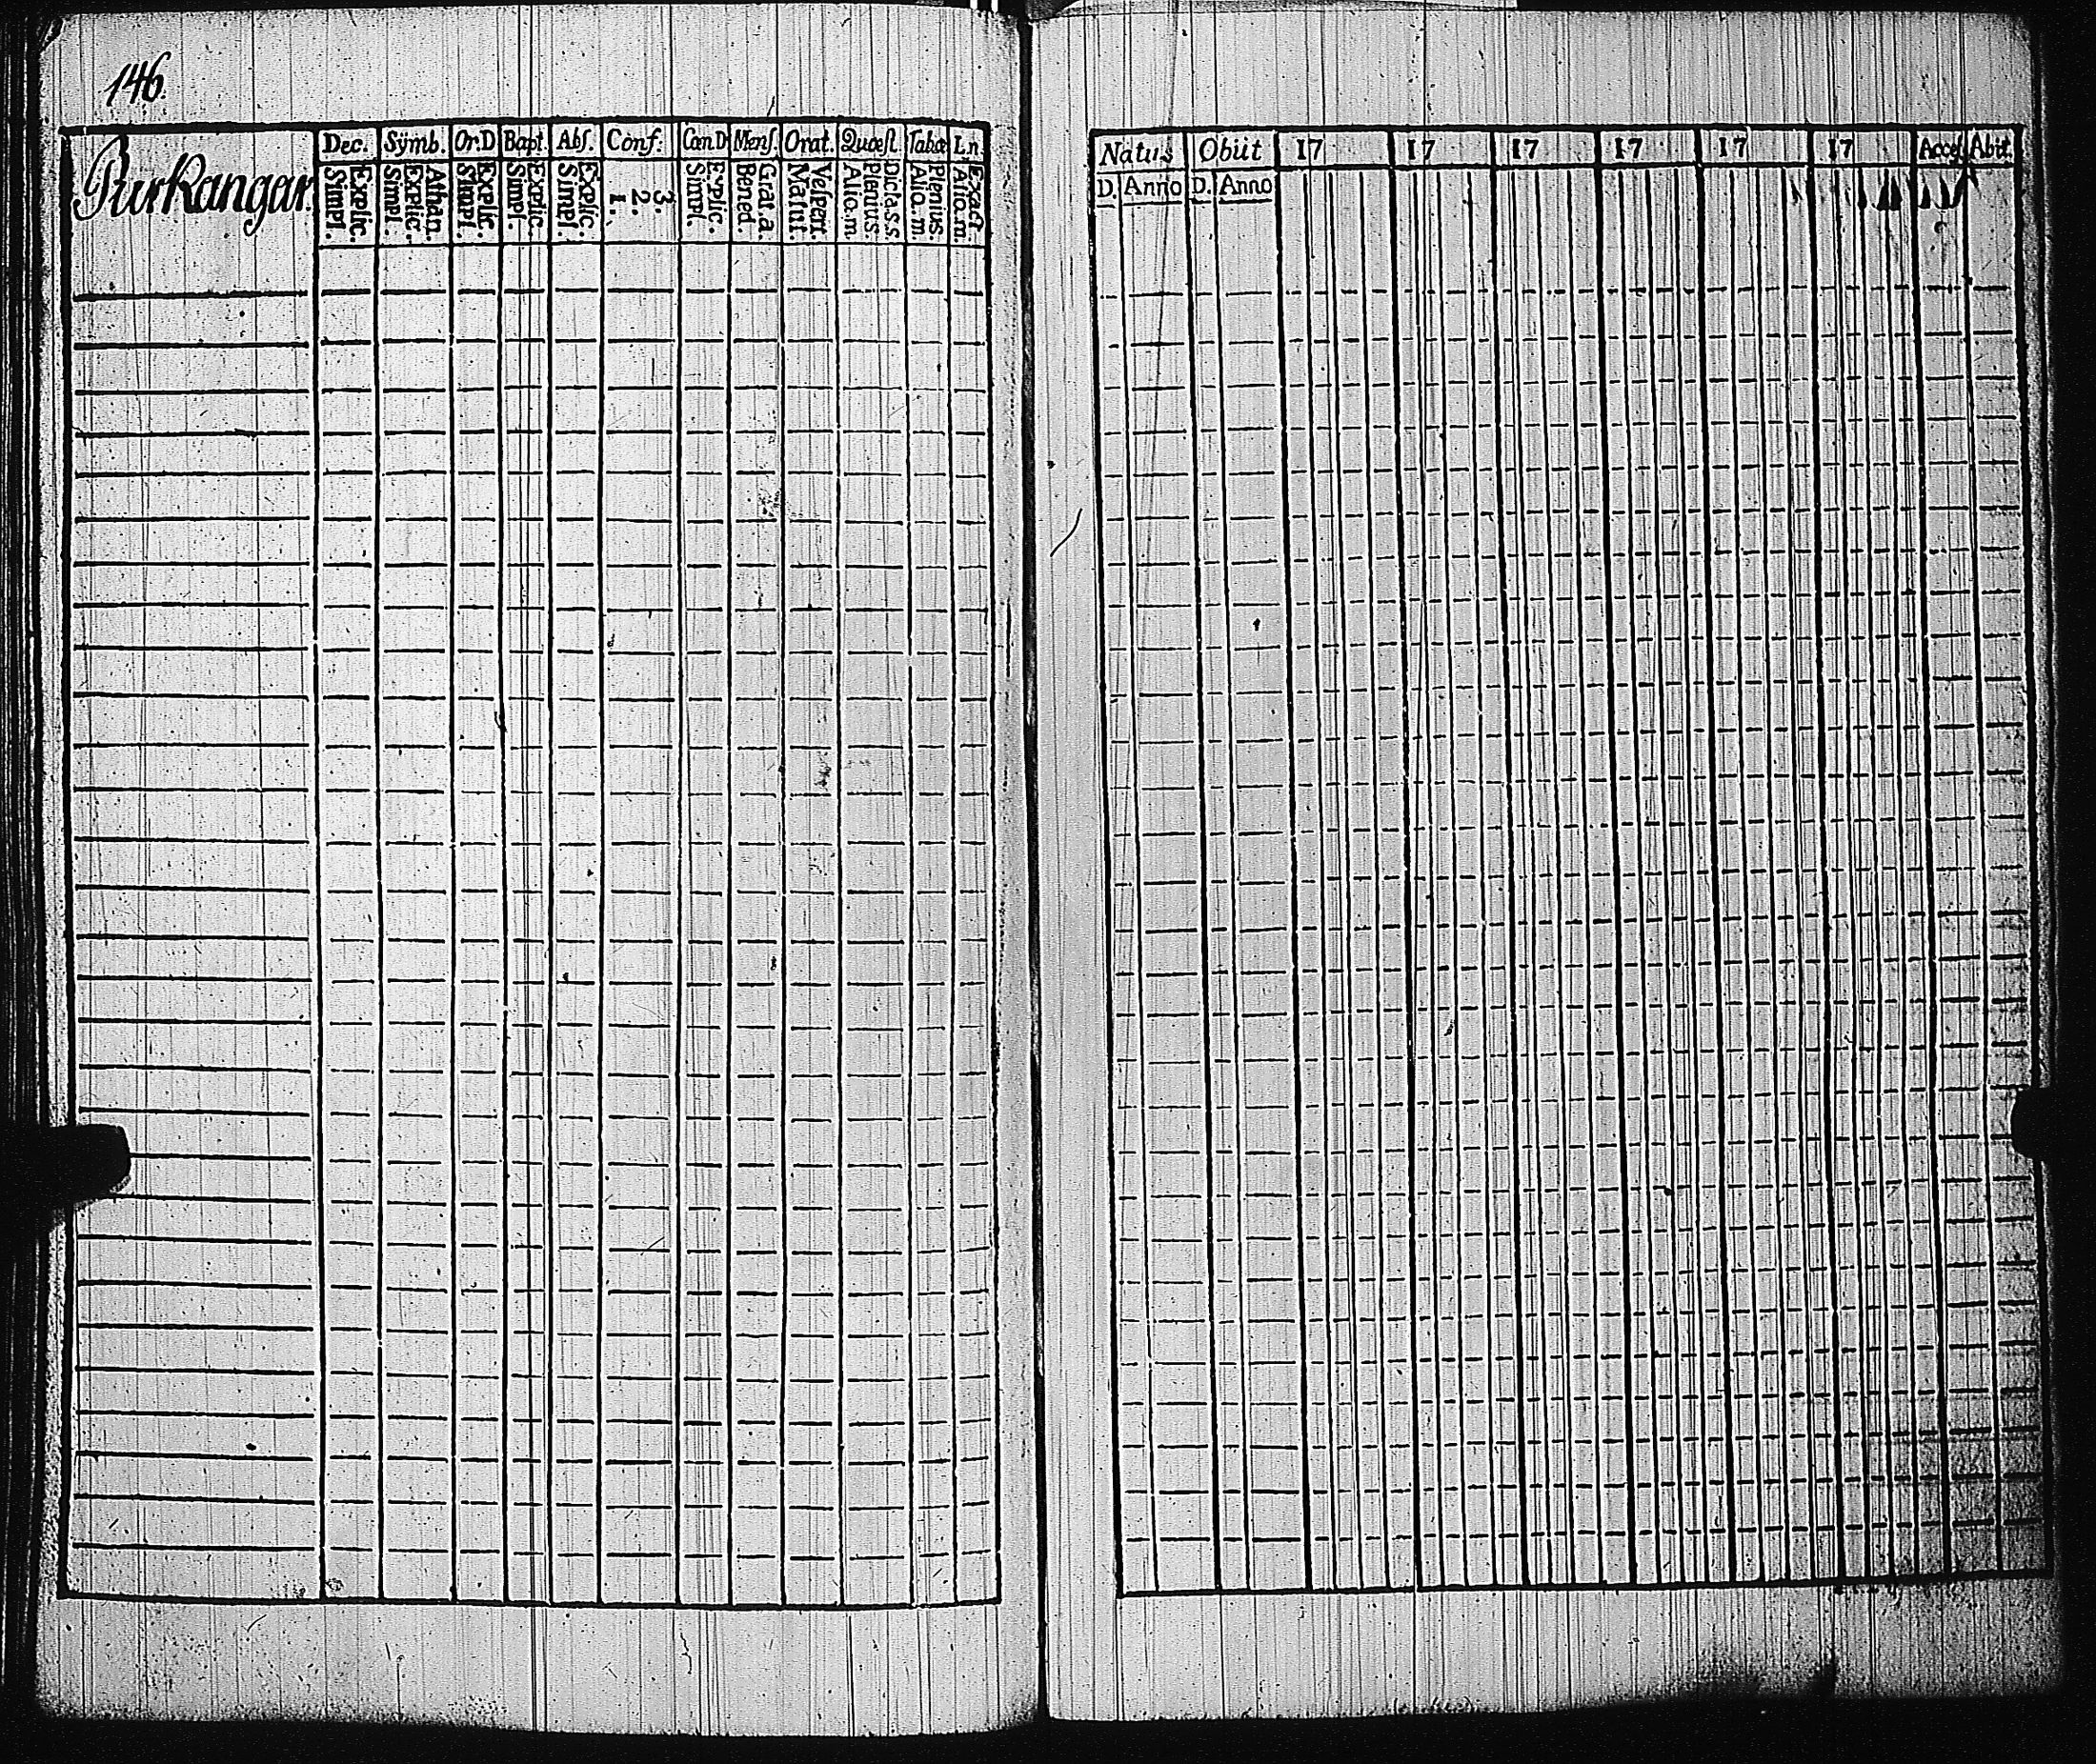 146.
Purkangar.
Dec. Sÿmb. Or.D Bapt. Abſ. Conf: CœnD Menſ. Orat. Quæſt. Tabæ L.n.
Explic. Simpl.
Athan. Explic. Simpl.
Explic. Simpl.
Explic. Simpl.
Explic. Simpl.
3. 2. 1.
Explic. Simpl.
Grat.a. Bened.
Veſpert. Matut.
Dicta.s.s. Plenius. Alio.m
Plenius. Alio.m.
Exact. A
Natus Obiit 17 17 17 17 17 17 Acceſ. Abit.
D. Anno D. Anno